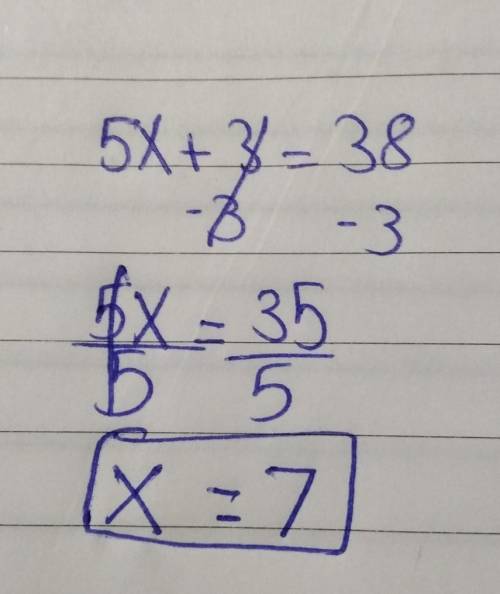 5x + 3 = 38
-3 -3
5x = 35
5 5
x = 7